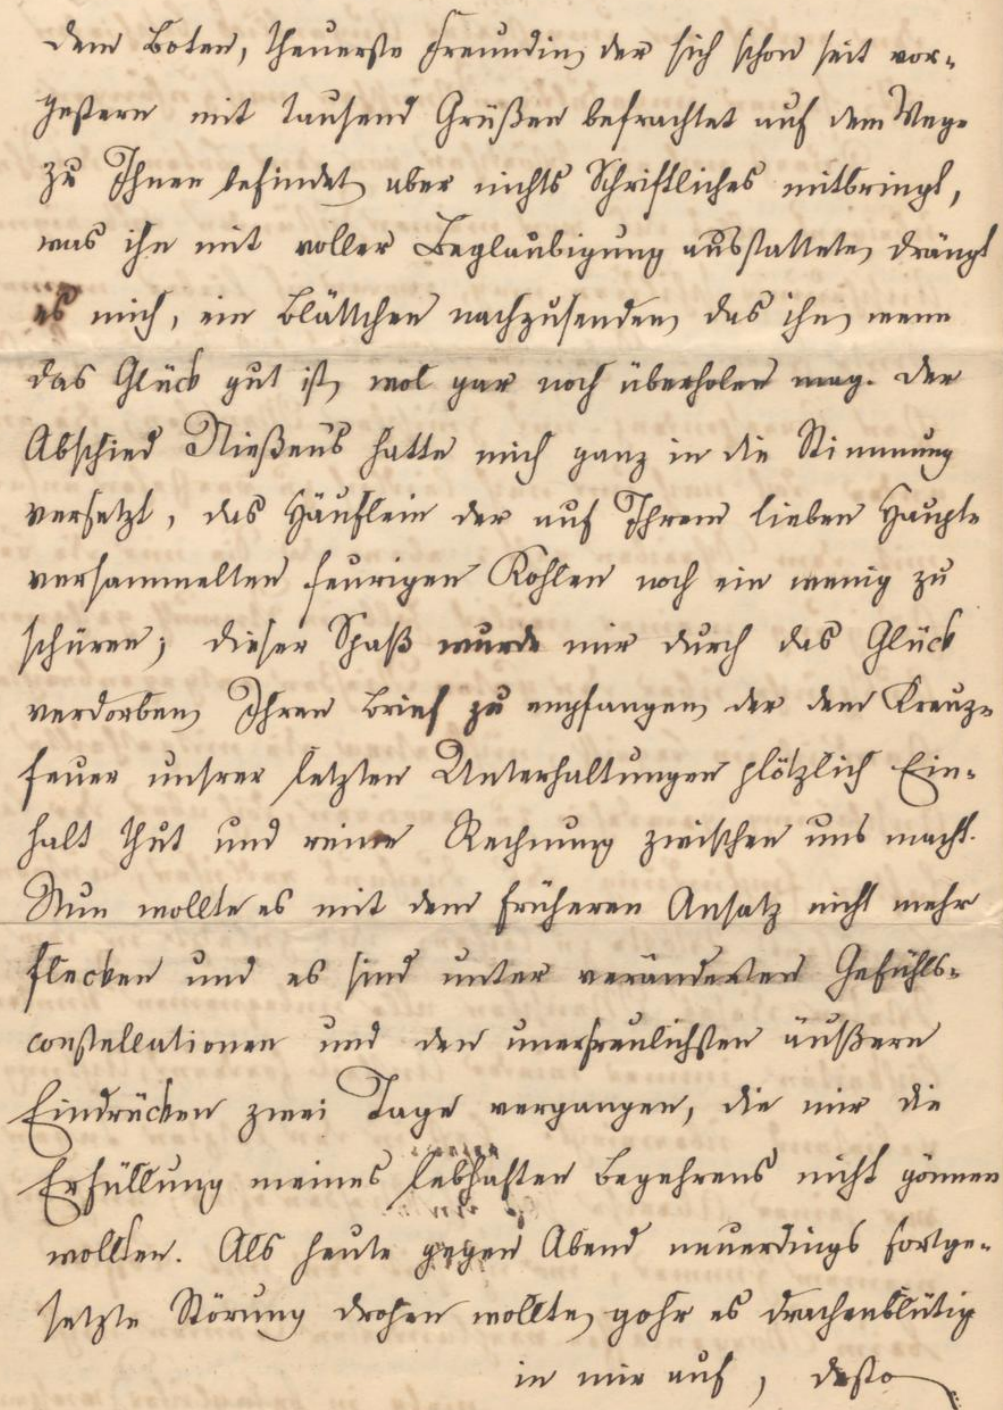 Dem Boten, theuerste Freundin, der sich schon seit vor-
gestern mit tausend Grüßen befrachtet auf dem Wege
zu Ihnen befindet, aber nichts Schriftliches mitbringt,
was ihn mit voller Beglaubigung ausstattete, drängt
es mich, ein Blättchen nachzusenden, das ihn, wenn
das Glück gut ist, wol gar noch überholen mag. Der
Abschied Nießens hatte mich ganz in die Stimmung
versetzt, das Häuflein der auf Ihrem lieben Haupte
versammelten feurigen Kohlen noch ein wenig zu
schüren; dieser Spaß wurde mir durch das Glück
verdorben, Ihren Brief zu empfangen, der dem Kreuz-
feuer unsrer letzten Unterhaltungen plötzlich Ein-
halt thut und reine Rechnung zwischen uns macht.
Nun wollte es mit dem früheren Ansatz nicht mehr
flecken und es sind unter veränderten Gefühls-
constellationen und den unerfreulichsten äußern
Eindrücken zwei Tage vergangen, die mir die
Erfüllung meines lebhaften Begehrens nicht gönnen
wollten. Als heute gegen Abend neuerdings fortge-
setzte Störung drohen wollte, gohr es drachenblütig
in mir auf, desto